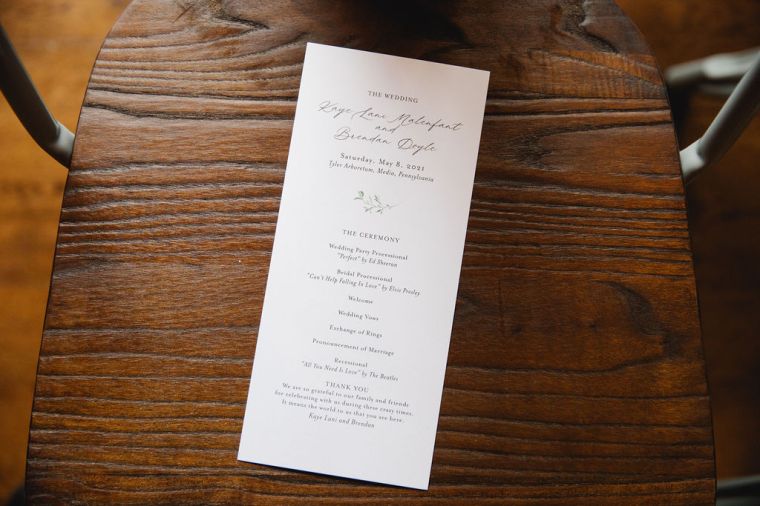 THE WEDDING
Kaye Lani Malenfant
and
Brendan Doyle
Saturday, May 8, 2021
Tyler Arboretum, Media, Pennsylvania
THE CEREMONY
Wedding Party Processional
"Perfect" by Ed Sheeran
Bridal Processional
"Can't Help Falling In Love" by Elvis Presley
Welcome
Wedding Vows
Exchange of Rings
Pronouncement of Marriage
Recessional
"All You Need Is Love" by The Beatles
THANK YOU
We are so grateful to our family and friends
for celebrating with us during these crazy times.
It means the world to us that you are here.
Kaye Lani and Brendan